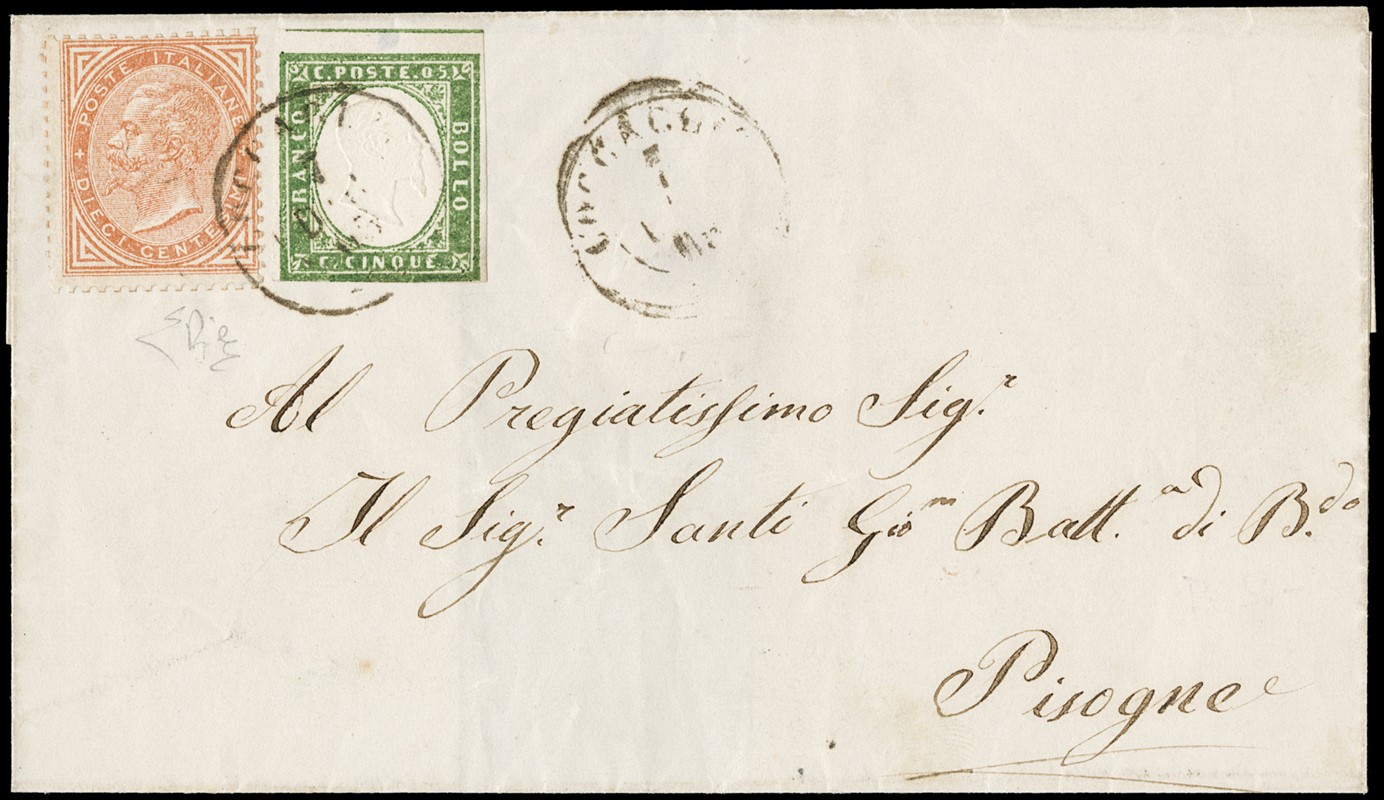 + POSTE ITALIANE +
DIECI CENTESIMI
C. POSTE. 05
FRANCO
BOLLO
C. CINQUE
COCCAGLIO
Al Pregiatissimo Sig.r
Il Sig.r Santi Gio.m Batt.a di B.do
Pisogne